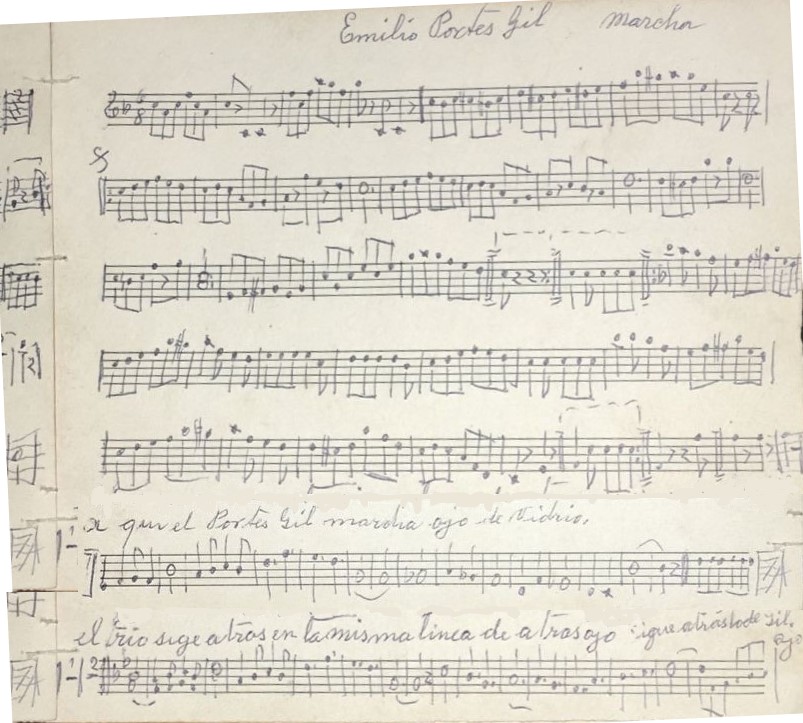 Emilio Portes Gil marcha
a qui el Portes Gil marcha ojo de Vidrio.
el trio sige atras en la misma linea de atras ojo sigue atrás